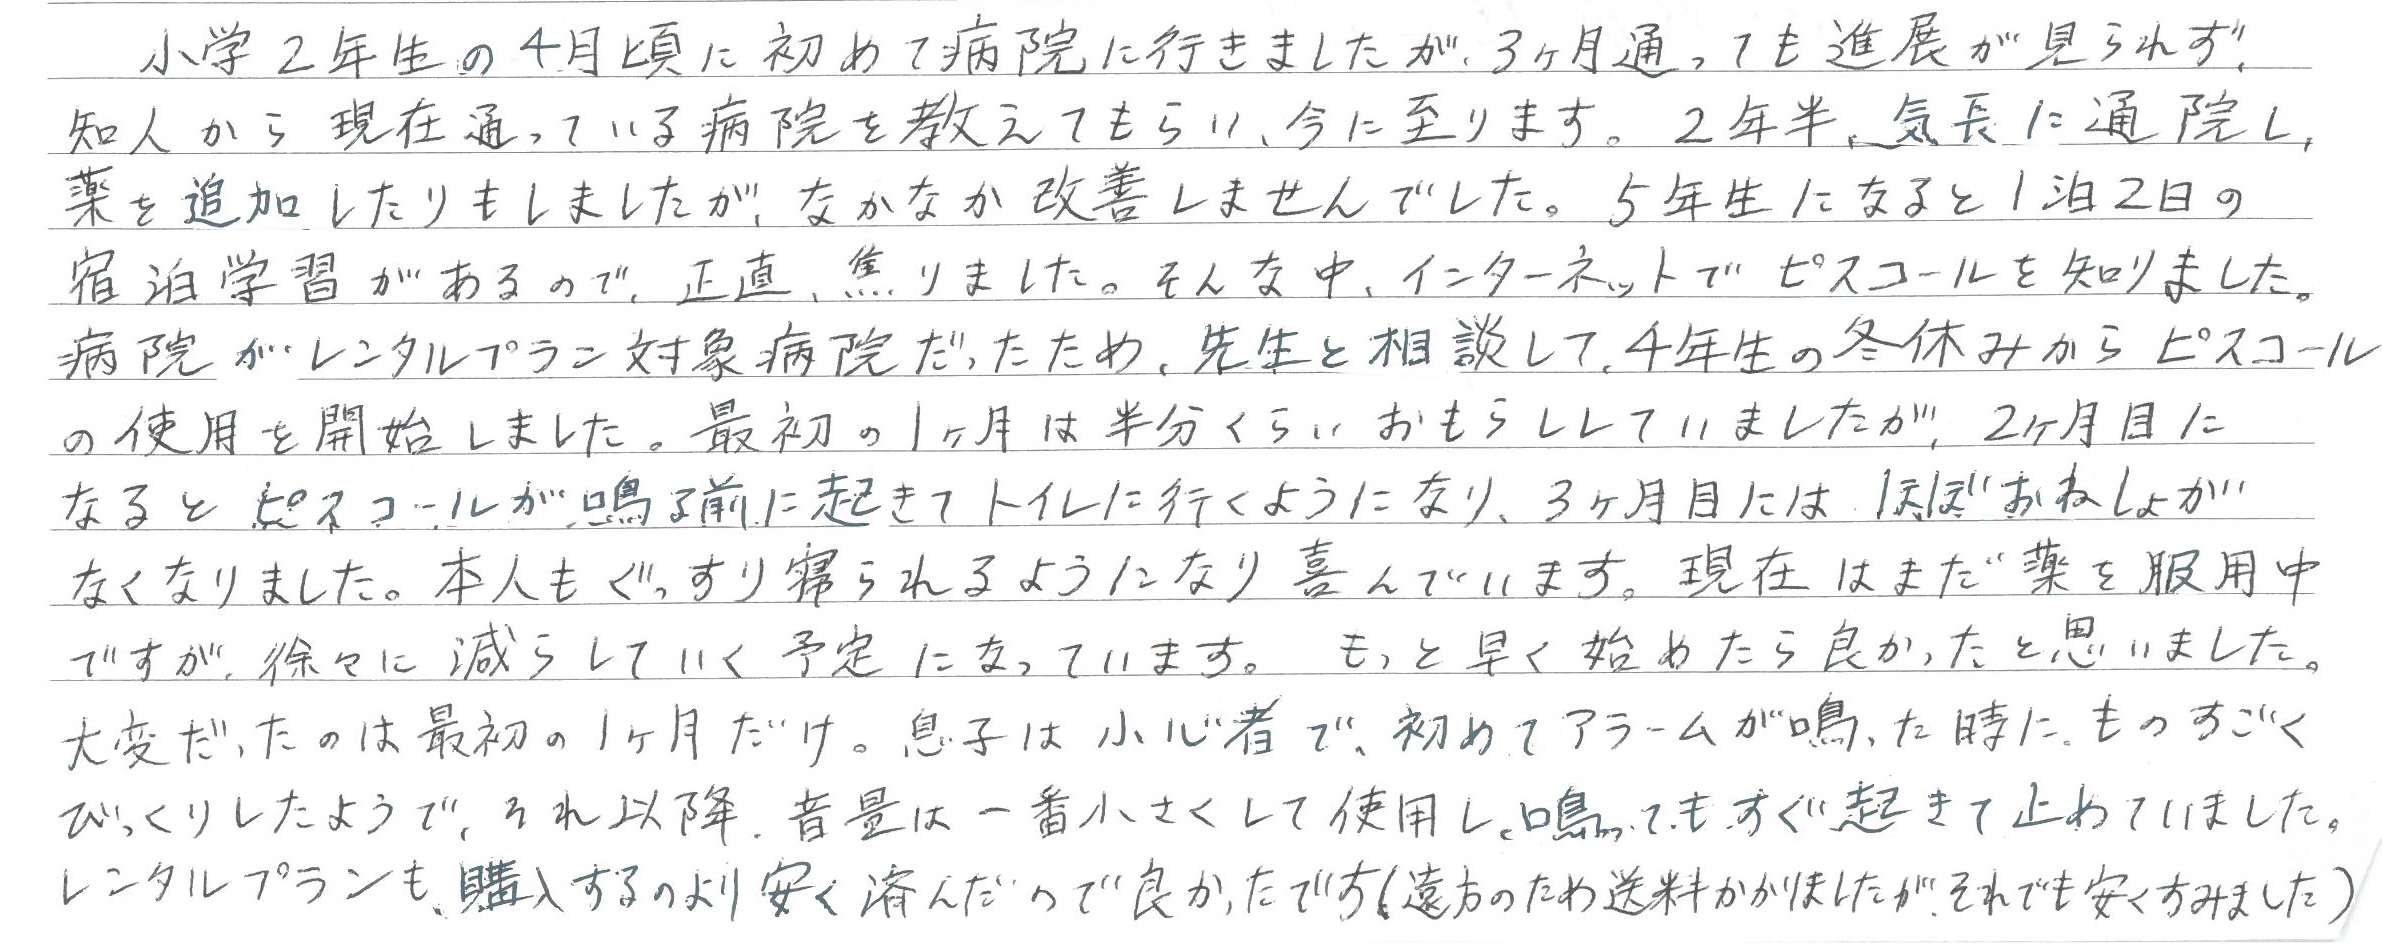 小学2年生の4月頃に初めて病院に行きましたが、3ヶ月通っても進展が見られず、
知人から現在通っている病院を教えてもらい、今に至ります。2年半、気長に通院し、
薬を追加したりもしましたが、なかなか改善しませんでした。5年生になると1泊2日の
宿泊学習があるので、正直、焦りました。そんな中、インターネットでピスコールを知りました。
病院がレンタルプラン対象病院だったため、先生と相談して、4年生の冬休みからピスコール
の使用を開始しました。最初の1ヶ月は半分くらいおもらししていましたが、2ヶ月目に
なるとピスコールが鳴る前に起きてトイレに行くようになり、3ヶ月目にはほぼおねしょが
なくなりました。本人もぐっすり寝られるようになり喜んでいます。現在はまだ薬を服用中
ですが、徐々に減らしていく予定になっています。もっと早く始めたら良かったと思いました。
大変だったのは最初の1ヶ月だけ。息子は小心者で、初めてアラームが鳴った時に、ものすごく
びっくりしたようで、それ以降、音量は一番小さくして使用し、鳴ってもすぐ起きて止めていました。
レンタルプランも、購入するのより安く済んだので良かったです(遠方のため送料かかりましたが、それでも安くすみました)